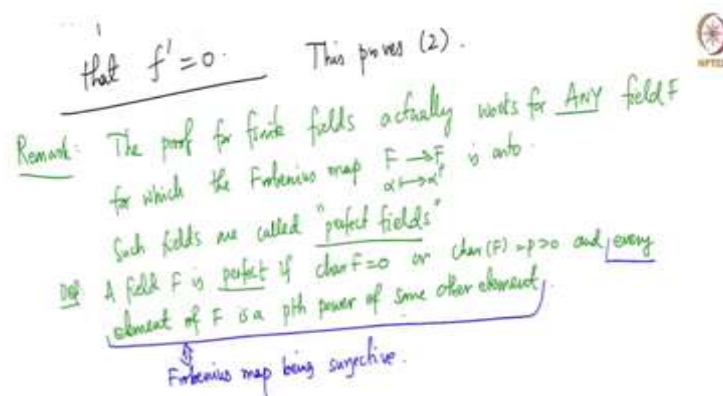 that f' = 0. This proves (2).
NPTEL
Remark: The proof for finite fields actually works for ANY field F
for which the Frobenius map F → F is onto.
α ↦ α^p
Such fields are called "perfect fields"
Def A field F is perfect if char F = 0 or char(F) = p > 0 and every
element of F is a pth power of some other element.
Frobenius map being surjective.